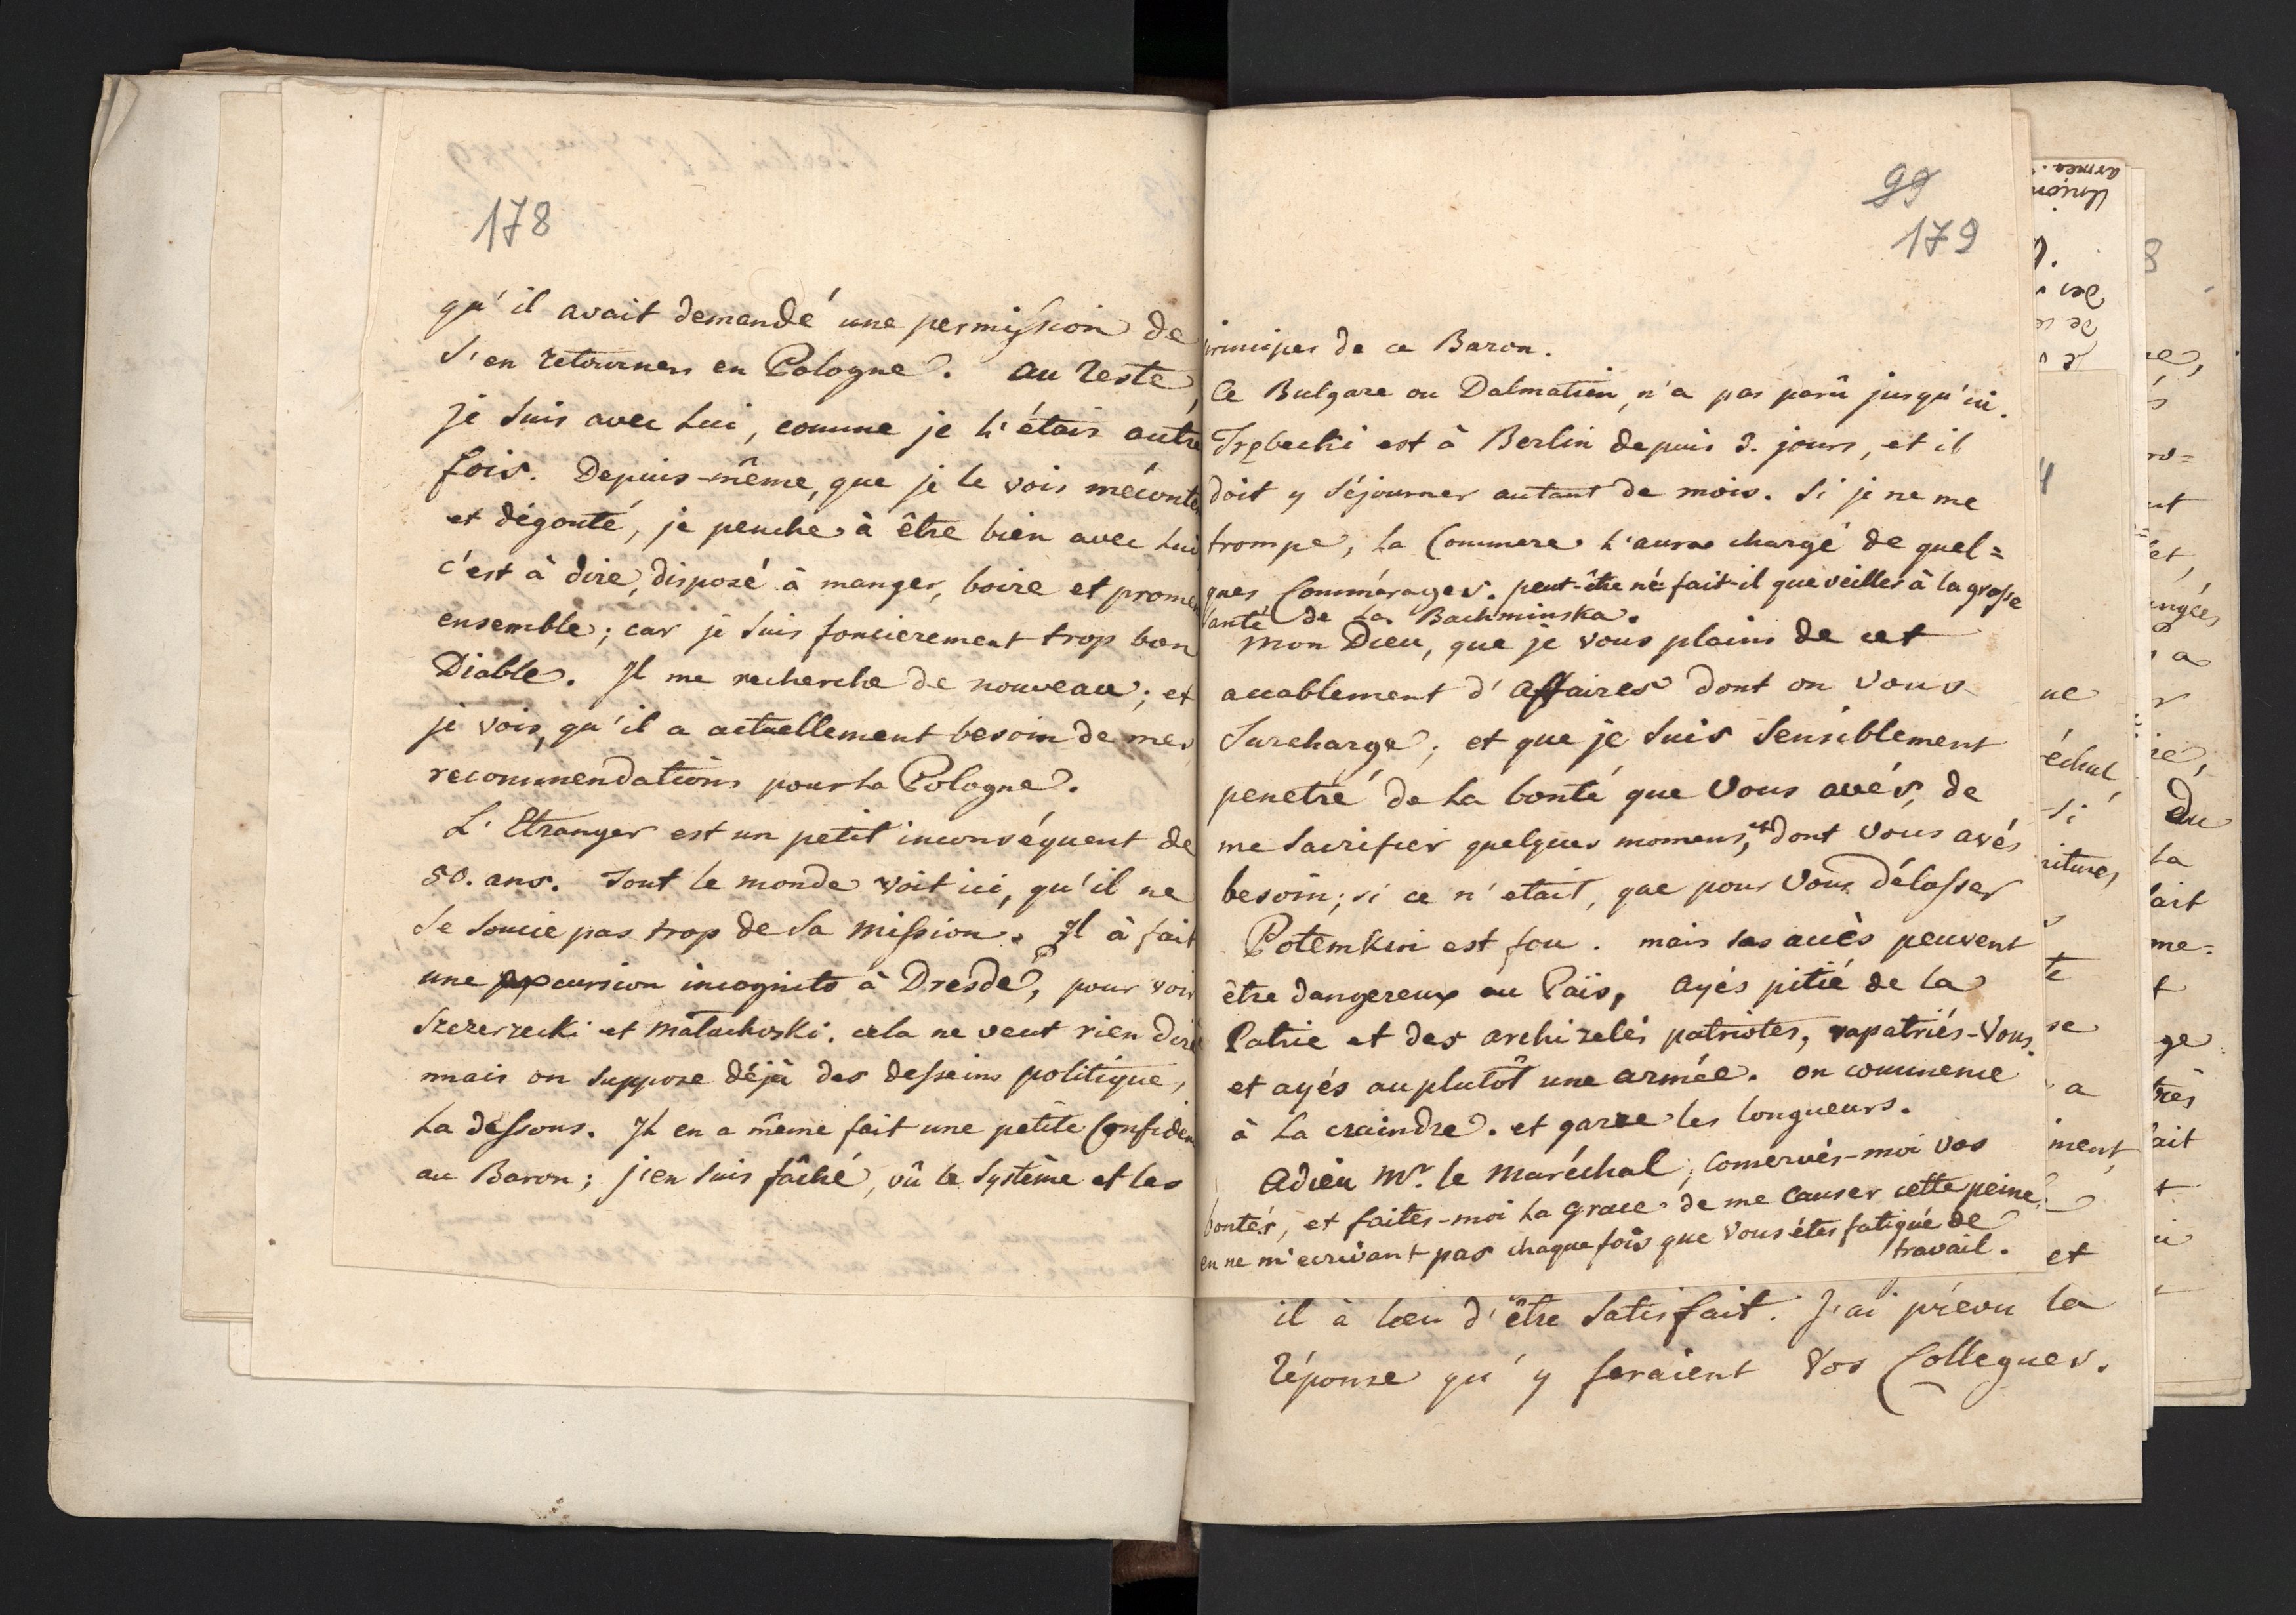 178
qu'il avait demandé une permission de
s'en retourner en Pologne. au reste,
je suis avec lui, comme je l'étais autre
fois. Depuis-même, que je le vois méconten
et dégouté, je penche à être bien avec lui
c'est à dire, disposé à manger, boire et promen
ensemble; car je suis foncierement trop bon
Diable. Il me recherche de nouveau; et
je vois, qu'il a actuellement besoin de mes
recommendations pour la Pologne.
L'Etranger est un petit inconséquent de
50. ans. tout le monde voit ici, qu'il ne
se soucie pas trop de sa mission. Il à fait
une excursion incognito à Dresde, pour voir
Szczerzecki et Małachoski. cela ne veut rien dire
mais on suppose déjà des desseins politique,
la dessous. Il en a même fait une petite Confiden
au Baron; j'en suis fâché, vû le système et les
99
179
principes de ce Baron.
Ce Bulgare ou Dalmatien, n'a pas parû jusqu'ici.
Trębecki est à Berlin depuis 3. jours, et il
doit y séjourner autant de mois. Si je ne me
trompe, la Commere l'aura chargé de quel=
ques Commérages. peut-être né fait-il que veiller à la grosse
santé de la Bachminska.
Mon Dieu, que je vous plains de cet
accablement d'affaires dont on vous
surcharge; et que je suis sensiblement
penetré de la bonté que vous avés, de
me sacrifier quelques momens, et dont vous avés
besoin; si ce n'etait, que pour vous délasser
Potemkin est fou. mais ses accès peuvent
être dangereux au Païs, ayés pitié de la
Patrie et des archizelés patriotes, rapatriés-vous
et ayés au plutôt une armée. on commence
à la craindre. et garre les longueurs.
Adieu Mr. le Maréchal; conservés-moi vos
bontés, et faites-moi la grace de me causer cette peine
en ne m'ecrivant pas chaque fois que vous étes fatigué de
travail.
il à lieu d'être satisfait. J'ai prévu la
réponse qu'y feraient vos Collegues.